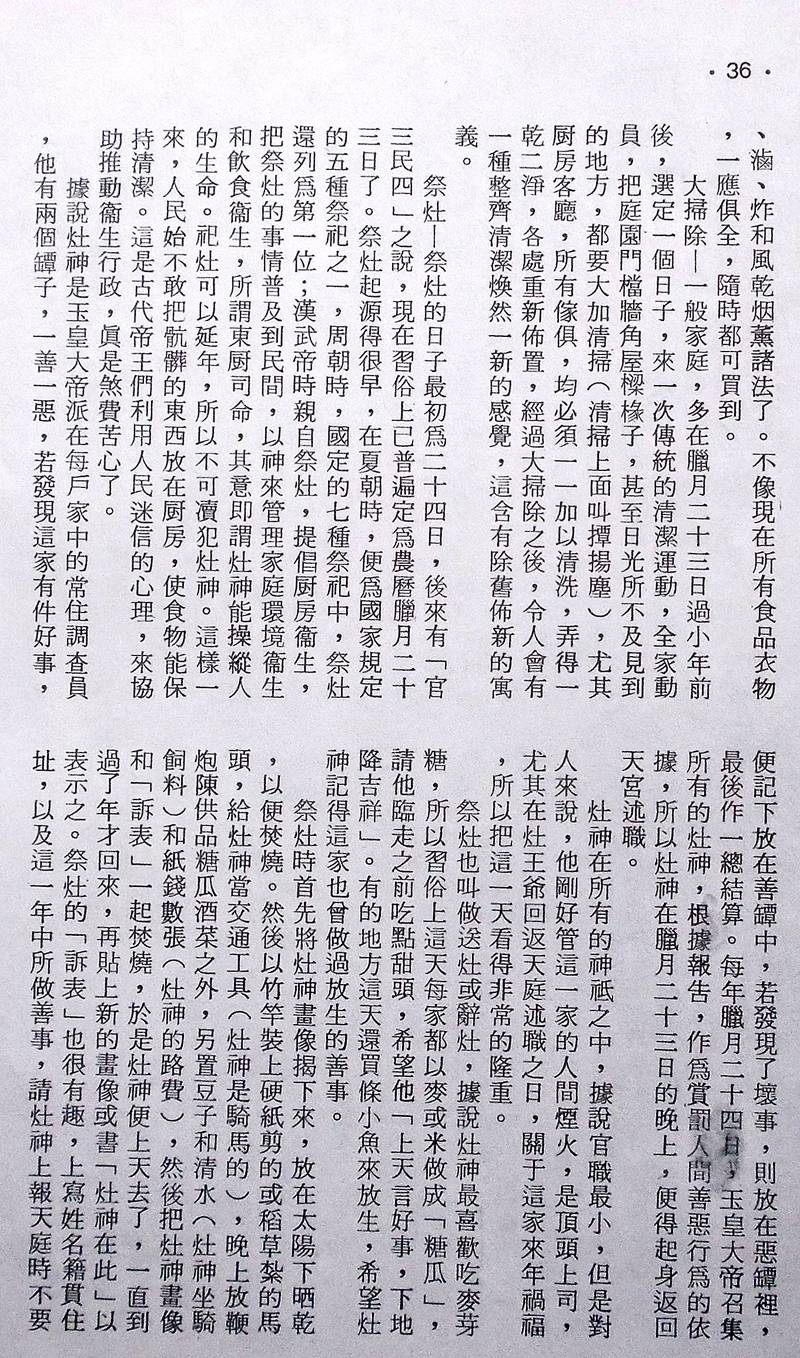 • 36 •
、滷、炸和風乾烟薰諸法了。不像現在所有食品衣物
，一應俱全，隨時都可買到。
大掃除—一般家庭，多在臘月二十三日過小年前
後，選定一個日子，來一次傳統的清潔運動，全家動
員，把庭園門檔牆角屋樑椽子，甚至日光所不及見到
的地方，都要大加清掃（清掃上面叫撣揚塵），尤其
厨房客廳，所有傢俱，均必須一一加以清洗，弄得一
乾二淨，各處重新佈置，經過大掃除之後，令人會有
一種整齊清潔煥然一新的感覺，這含有除舊佈新的寓
義。
祭灶—祭灶的日子最初爲二十四日，後來有「官
三民四」之說，現在習俗上已普遍定爲農曆臘月二十
三日了。祭灶起源得很早，在夏朝時，便爲國家規定
的五種祭祀之一，周朝時，國定的七種祭祀中，祭灶
還列爲第一位；漢武帝時親自祭灶，提倡厨房衞生，
把祭灶的事情普及到民間，以神來管理家庭環境衞生
和飲食衞生，所謂東厨司命，其意即謂灶神能操縱人
的生命。祀灶可以延年，所以不可瀆犯灶神。這樣一
來，人民始不敢把骯髒的東西放在厨房，使食物能保
持清潔。這是古代帝王們利用人民迷信的心理，來協
助推動衞生行政，眞是煞費苦心了。
據說灶神是玉皇大帝派在每戶家中的常住調查員
，他有兩個罈子，一善一惡，若發現這家有件好事，
便記下放在善罈中，若發現了壞事，則放在惡罈裡，
最後作一總結算。每年臘月二十四日，玉皇大帝召集
所有的灶神，根據報告，作爲賞罰人間善惡行爲的依
據，所以灶神在臘月二十三日的晚上，便得起身返回
天宮述職。
灶神在所有的神祇之中，據說官職最小，但是對
人來說，他剛好管這一家的人間煙火，是頂頭上司，
尤其在灶王爺回返天庭述職之日，關于這家來年禍福
，所以把這一天看得非常的隆重。
祭灶也叫做送灶或辭灶，據說灶神最喜歡吃麥芽
糖，所以習俗上這天每家都以麥或米做成「糖瓜」，
請他臨走之前吃點甜頭，希望他「上天言好事，下地
降吉祥」。有的地方這天還買條小魚來放生，希望灶
神記得這家也曾做過放生的善事。
祭灶時首先將灶神畫像揭下來，放在太陽下晒乾
，以便焚燒。然後以竹竿裝上硬紙剪的或稻草紮的馬
頭，給灶神當交通工具（灶神是騎馬的），晚上放鞭
炮陳供品糖瓜酒菜之外，另置豆子和清水（灶神坐騎
飼料）和紙錢數張（灶神的路費），然後把灶神畫像
和「訴表」一起焚燒，於是灶神便上天去了，一直到
過了年才回來，再貼上新的畫像或書「灶神在此」以
表示之。祭灶的「訴表」也很有趣，上寫姓名籍貫住
址，以及這一年中所做善事，請灶神上報天庭時不要